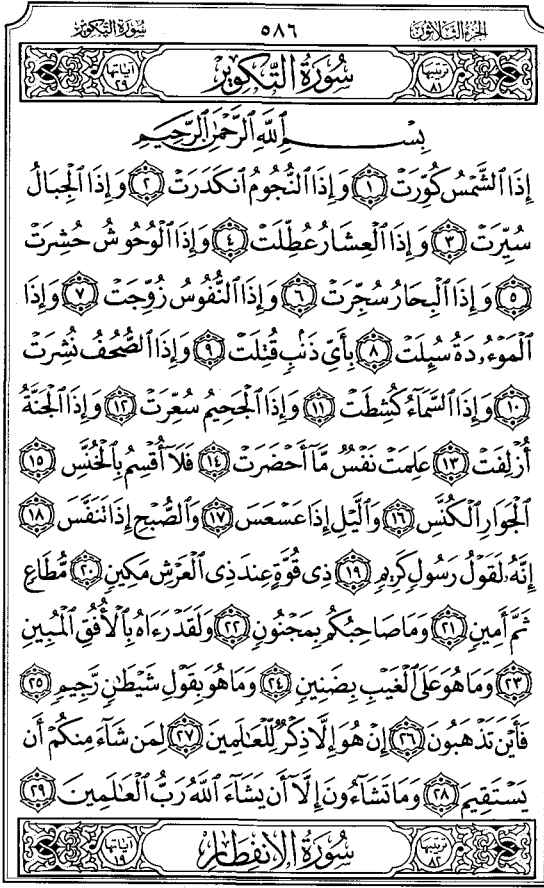 الجزء الثلاثون ٥٨٦ سورة التكوير
ترتيبها ٨١ سُورَةُ التَّكْوِيرِ آياتها ٢٩
بِسْمِ ٱللَّهِ ٱلرَّحْمَٰنِ ٱلرَّحِيمِ
إِذَا ٱلشَّمْسُ كُوِّرَتْ ١ وَإِذَا ٱلنُّجُومُ ٱنكَدَرَتْ ٢ وَإِذَا ٱلْجِبَالُ
سُيِّرَتْ ٣ وَإِذَا ٱلْعِشَارُ عُطِّلَتْ ٤ وَإِذَا ٱلْوُحُوشُ حُشِرَتْ
٥ وَإِذَا ٱلْبِحَارُ سُجِّرَتْ ٦ وَإِذَا ٱلنُّفُوسُ زُوِّجَتْ ٧ وَإِذَا
ٱلْمَوْءُۥدَةُ سُئِلَتْ ٨ بِأَىِّ ذَنۢبٍ قُتِلَتْ ٩ وَإِذَا ٱلصُّحُفُ نُشِرَتْ
١٠ وَإِذَا ٱلسَّمَآءُ كُشِطَتْ ١١ وَإِذَا ٱلْجَحِيمُ سُعِّرَتْ ١٢ وَإِذَا ٱلْجَنَّةُ
أُزْلِفَتْ ١٣ عَلِمَتْ نَفْسٌ مَّآ أَحْضَرَتْ ١٤ فَلَآ أُقْسِمُ بِٱلْخُنَّسِ ١٥
ٱلْجَوَارِ ٱلْكُنَّسِ ١٦ وَٱلَّيْلِ إِذَا عَسْعَسَ ١٧ وَٱلصُّبْحِ إِذَا تَنَفَّسَ ١٨
إِنَّهُۥ لَقَوْلُ رَسُولٍ كَرِيمٍ ١٩ ذِى قُوَّةٍ عِندَ ذِى ٱلْعَرْشِ مَكِينٍ ٢٠ مُّطَاعٍ
ثَمَّ أَمِينٍ ٢١ وَمَا صَاحِبُكُم بِمَجْنُونٍ ٢٢ وَلَقَدْ رَءَاهُ بِٱلْأُفُقِ ٱلْمُبِينِ
٢٣ وَمَا هُوَ عَلَى ٱلْغَيْبِ بِضَنِينٍ ٢٤ وَمَا هُوَ بِقَوْلِ شَيْطَٰنٍ رَّجِيمٍ ٢٥
فَأَيْنَ تَذْهَبُونَ ٢٦ إِنْ هُوَ إِلَّا ذِكْرٌ لِّلْعَٰلَمِينَ ٢٧ لِمَن شَآءَ مِنكُمْ أَن
يَسْتَقِيمَ ٢٨ وَمَا تَشَآءُونَ إِلَّآ أَن يَشَآءَ ٱللَّهُ رَبُّ ٱلْعَٰلَمِينَ ٢٩
ترتيبها ٨٢ سُورَةُ الانفِطَارِ آياتها ١٩